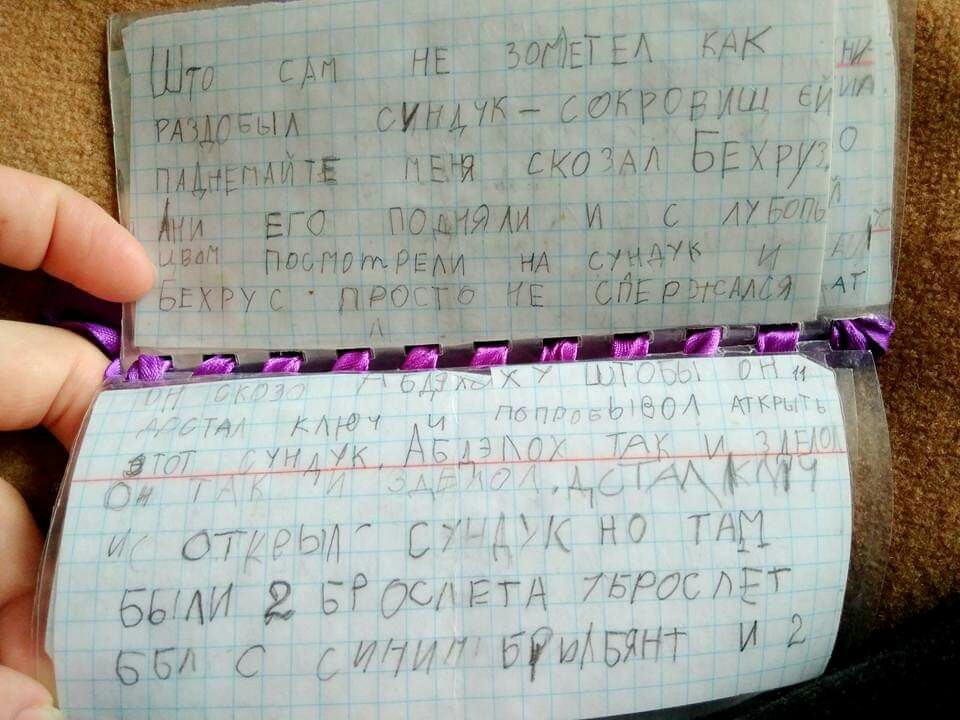 Што САМ НЕ ЗОМЕТЕЛ КАК
РАЗДОБЫЛ СУНДУК — СОКРОВИЩ ЕЙ
ПАДНЕМАЙТЕ МЕНЯ СКОЗАЛ БЕХРУЗ
АНИ ЕГО ПОДНЯЛИ И С ЛУБОПЬ
ЦВОМ ПОСМОТРЕЛИ НА СУНДУК И
БЕХРУС ПРОСТО НЕ СДЕРЖАЛСЯ
ОН СКОЗО ШТОБЫ ОН
ДОСТАЛ КЛЮЧ И ПОПРОБЫВОЛ АТКРЫТЬ
ЭТОТ СУНДУК. АБДЭЛОХ ТАК И ЗДЕЛОЛ
ОН ТАК И ЗДЕЛОЛ. ДСТАЛ КЛЮЧ
ОТКРЫЛ СУНДУК НО ТАМ
БЫЛИ 2 БРОСЛЕТА 1 БРОСЛЕТ
ББЛ С СИНИМ БРЫЛБЯНТ И 2